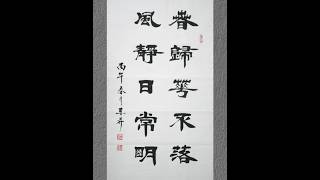 春歸花不落
風靜日常明
丙午春月